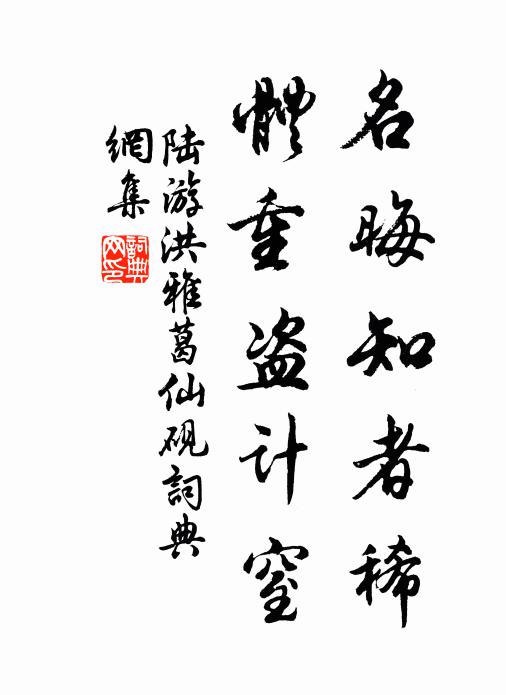 名晦知者稀
體重盜計窒
陸游洪雅葛仙砚詞典
網集
詞典
网印